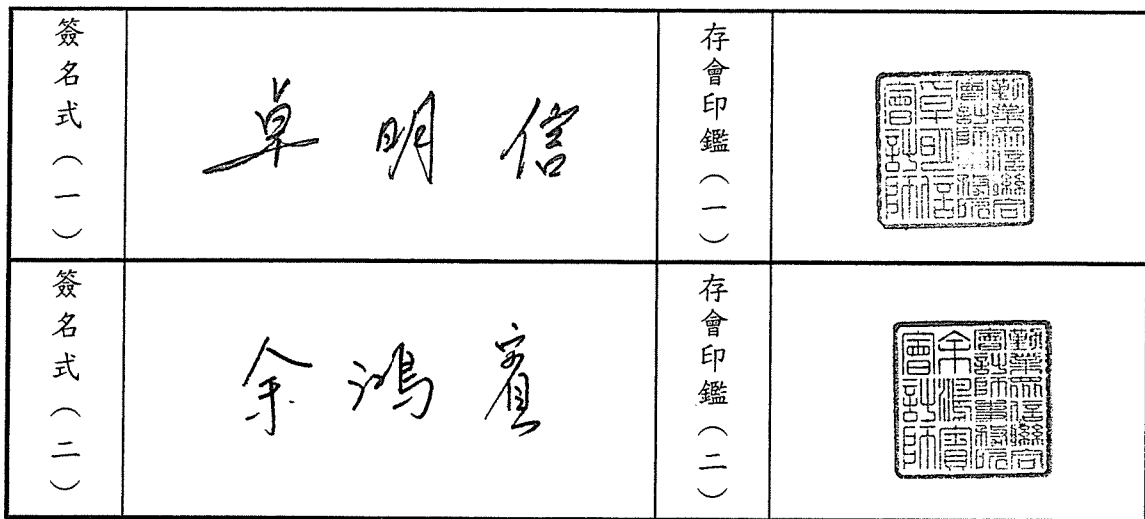 簽名式（一）
卓明信
存會印鑑（一）
勤業眾信聯合
會計師事務所
卓明信
會計師
簽名式（二）
余鴻賓
存會印鑑（二）
勤業眾信聯合
會計師事務所
余鴻賓
會計師